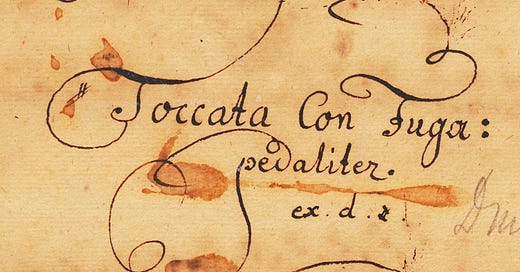 Toccata Con Fuga:
pedaliter.
ex. d.